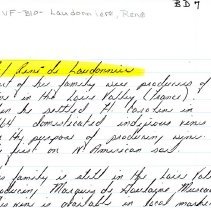 BD 7
VF-BIO- Laudonniere, René
René de Laudonnière
of his family were producers of
in the Loire Valley (France)
he settled Ft Caroline in
domesticated indigenous
the purpose of producing wine.
first on N American soil.
family is still in the Loire
producing Marquis de Goulaine Muscadet
wine is available in local markets